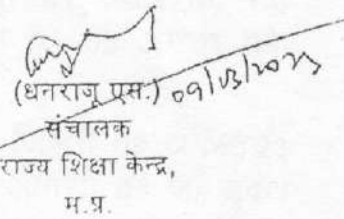 (धनराजू एस.) 09/03/2023
संचालक
राज्य शिक्षा केन्द्र,
म.प्र.